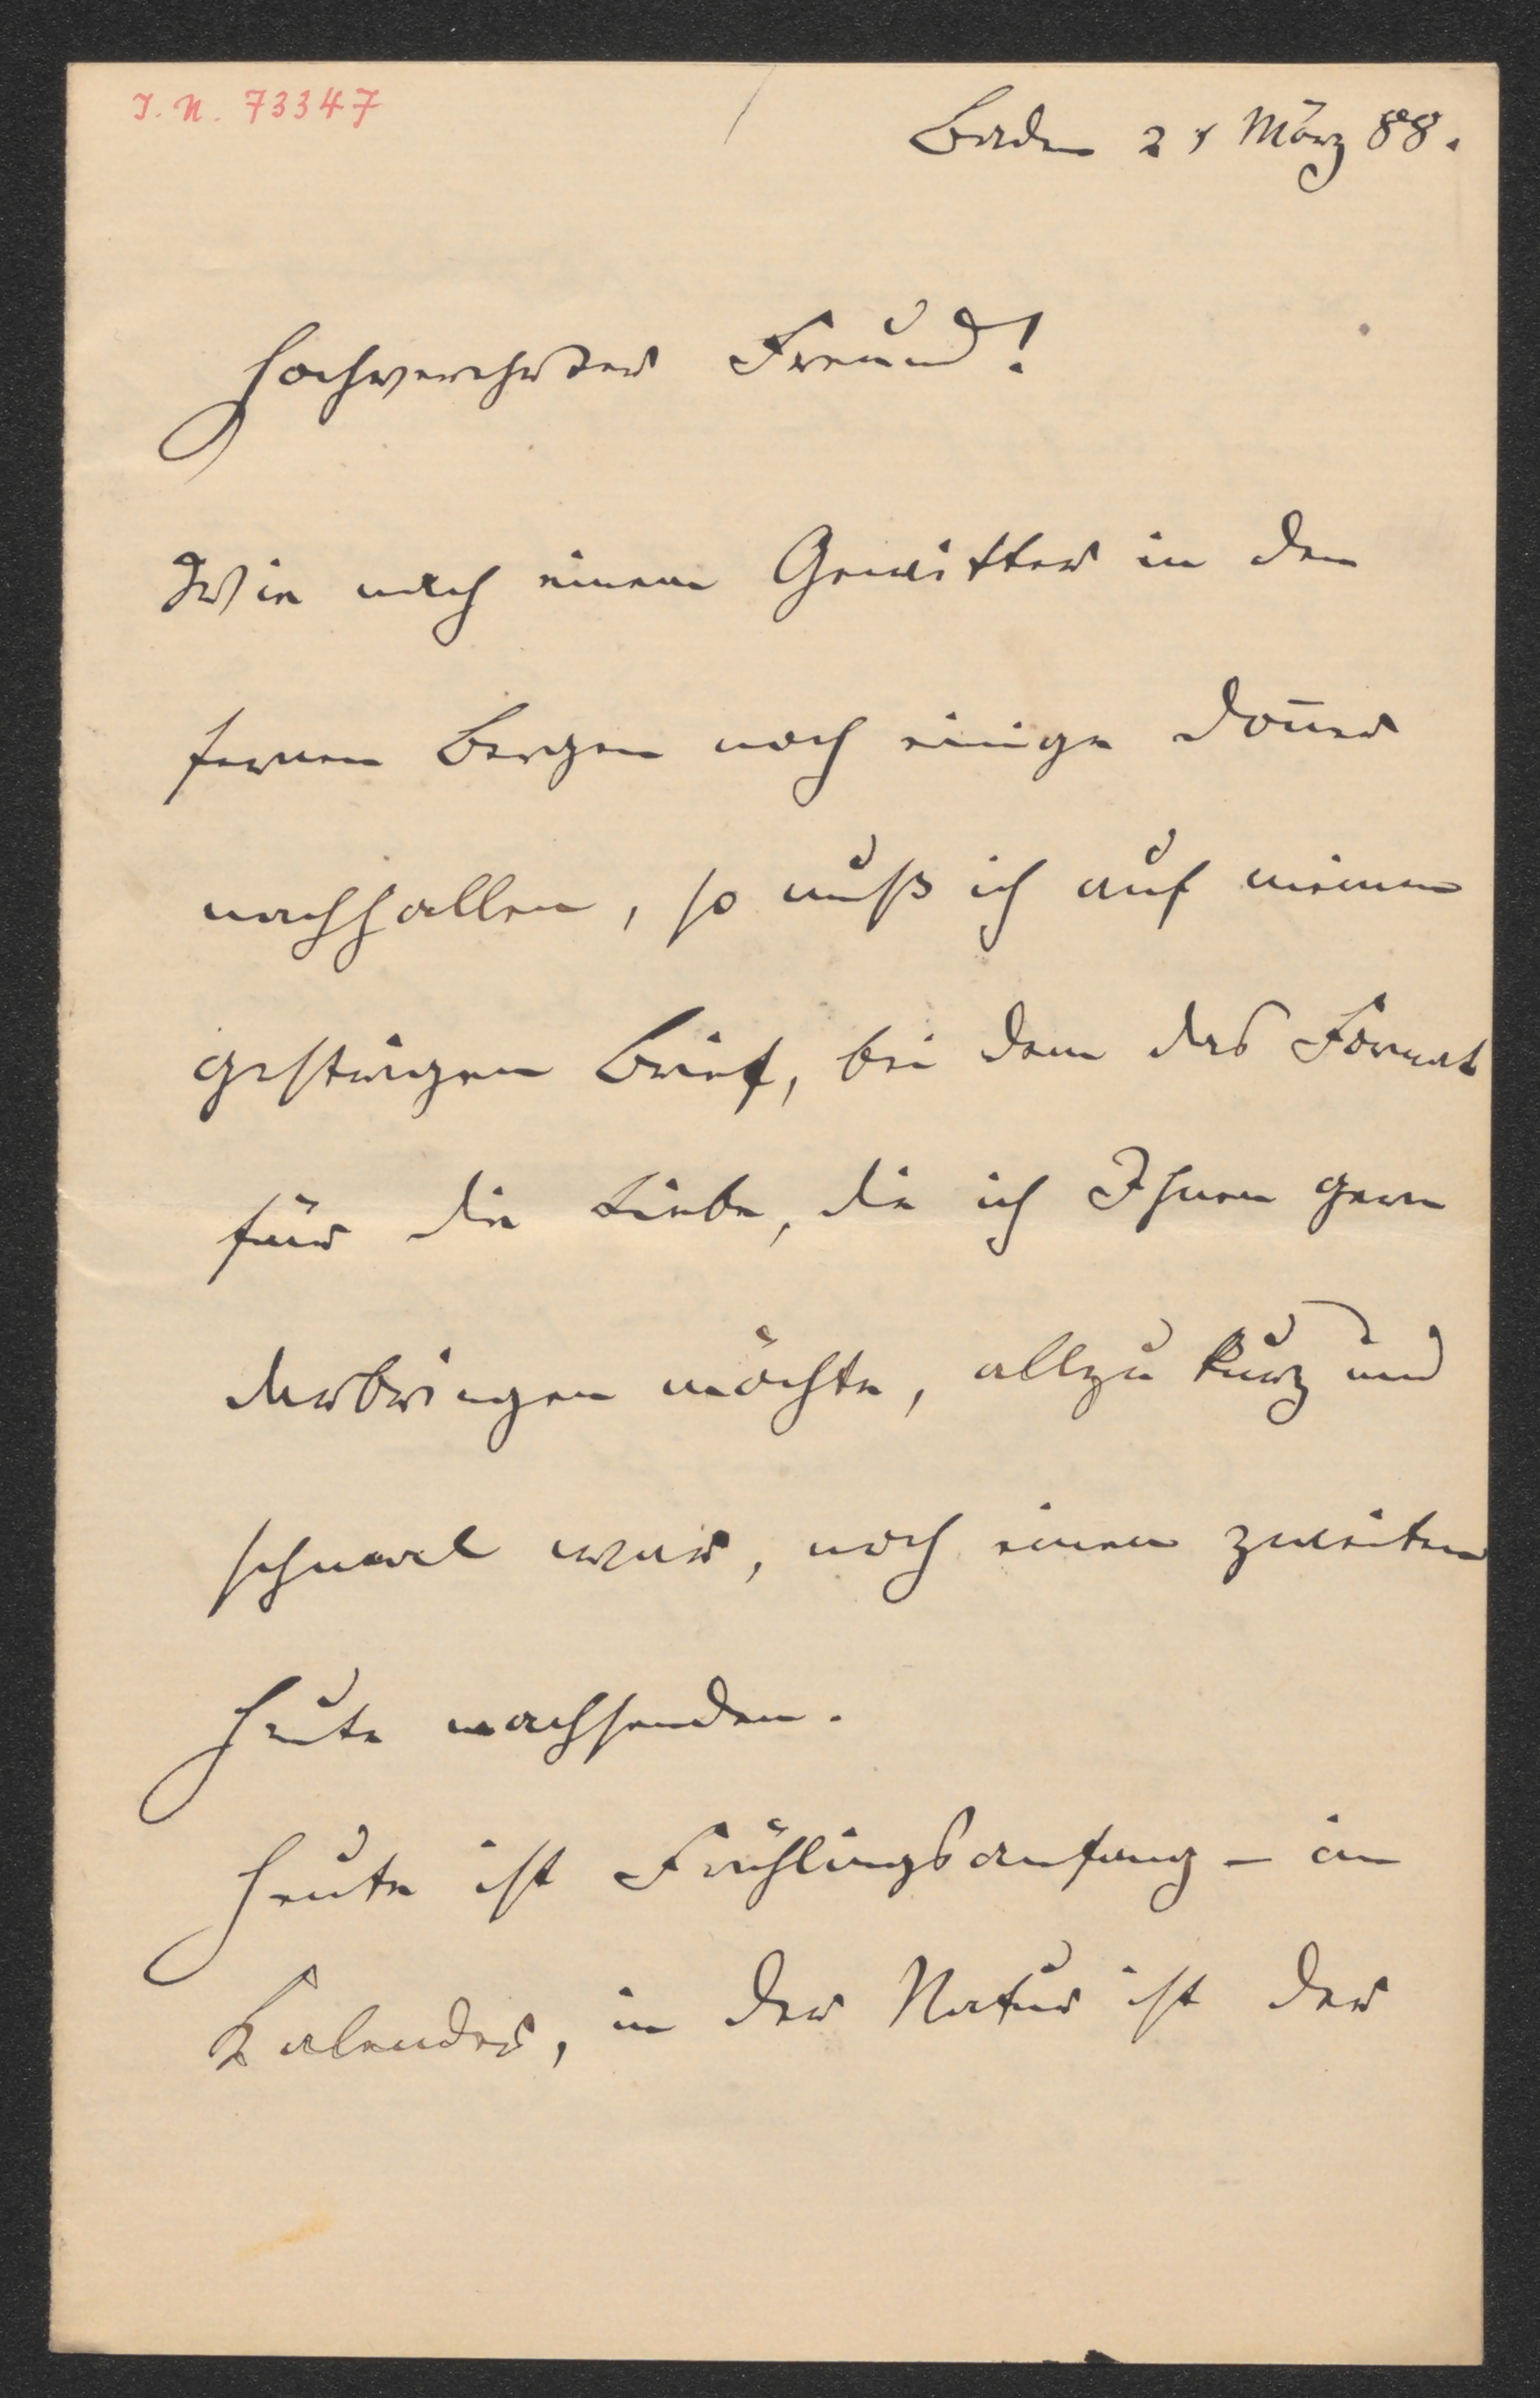 I. N. 73347
Baden 21 März 88.
Hochverehrter Freund!
Wie nach einem Gewitter in den
fernen Bergen noch einige Doñer
nachhallen, so muß ich auf meinen
gestrigen Brief, bei dem das Format
für die Liebe, die ich Ihnen gern
darbringen möchte, allzu kurz und
schmal war, noch einen zweiten
heute nachsenden.
Heute ist Frühlingsanfang – im
Kalender, in der Natur ist der